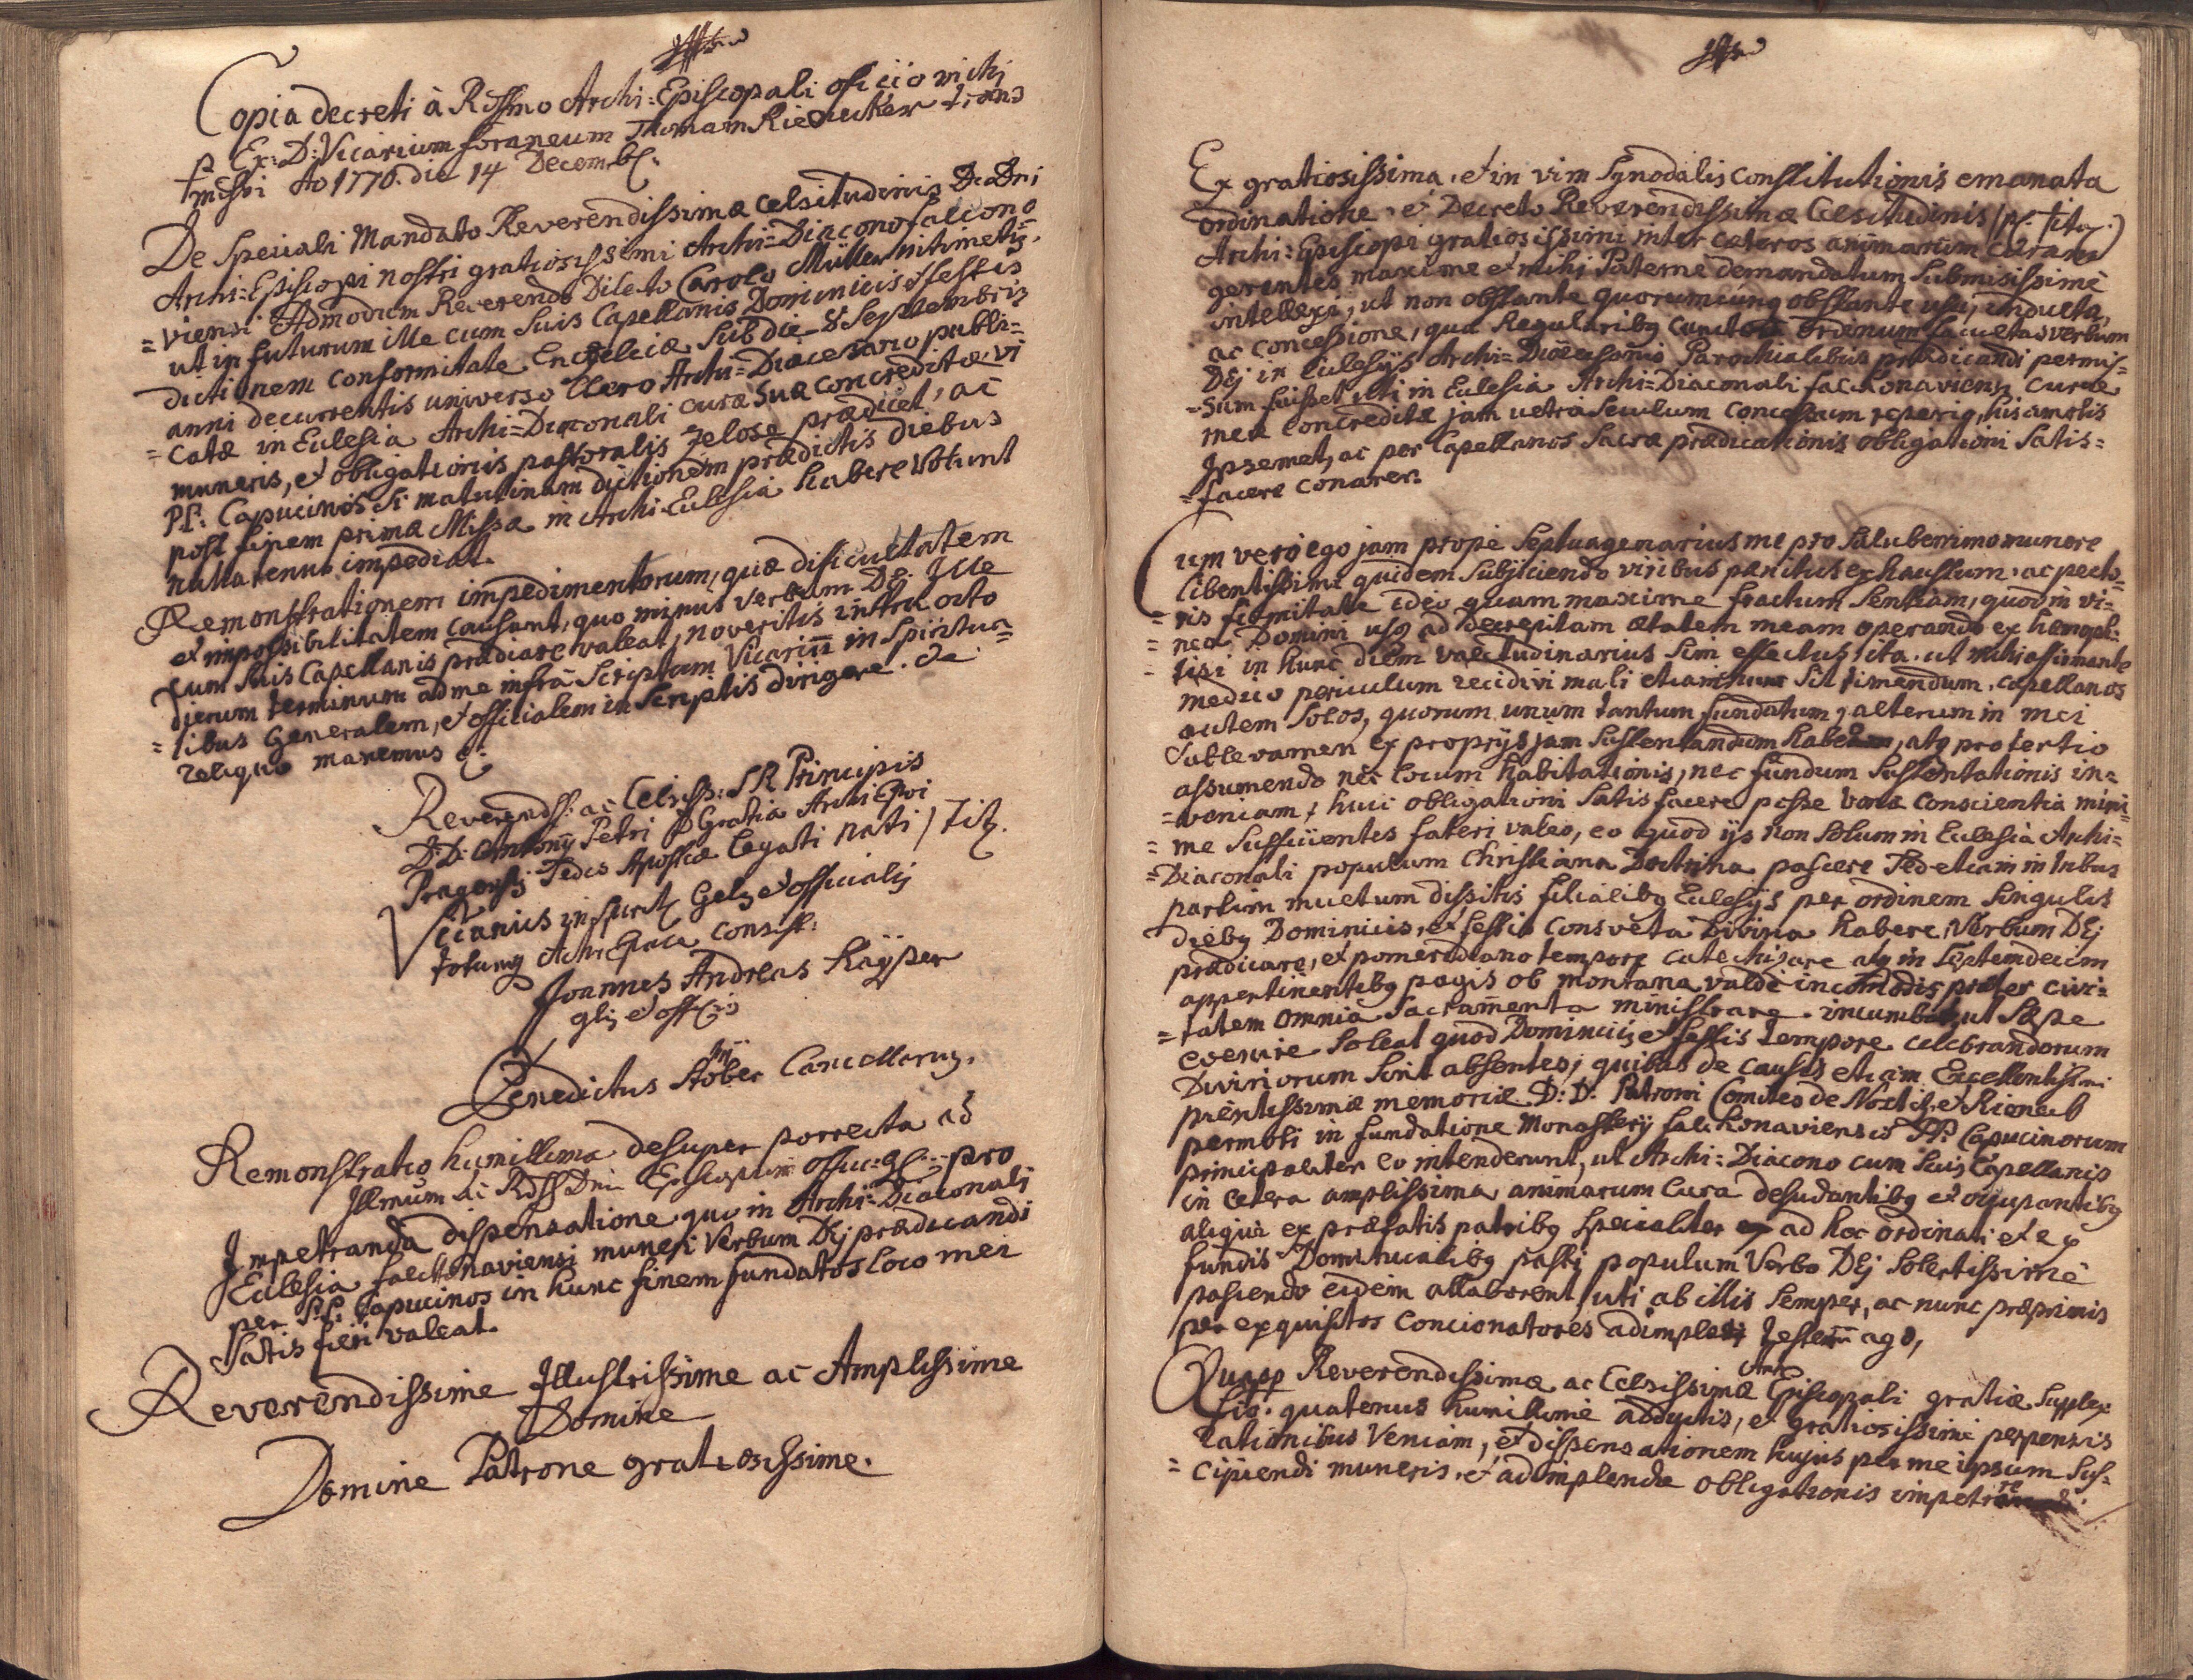 Copia decreti à Rssmo Archi=Episcopali oficio vichj
p Ex: D: Vicarium foraneum Thomam Rieducker trans
missi Ao 1770. die 14 Decembr.
De Speciali Mandato Reverendissimæ Celsitudinis D. Dni
Archi=Episcopi nostri gratiosissimi Archi=Diacono falcono
=viensi Admodum Reverendo Dilecto Carolo Müller
ut in futurum ille cum Suis Capellanis Dominicis & festis
dictionem conformitate Encyclicæ Sub die 8 Septembris
anni decurrentis universo Clero Archi=Diœcesano publi=
=catæ in Eclesia Archi=Diaconali curæ Suæ concreditæ vi
muneris, et obligationis pastoralis zelose prædicet, ac
PP: Capucinos Si matutinam dictionem prædictis diebus
post finem primæ Missæ in Archi-Eclesia habere volunt
nullatenus impediat.
Remonstrationem impedimentorum, quæ dificultatem
et impossibilitatem causant, quo minus verbum Dei Ille
cum Suis Capellanis prædicare valeat, noveritis intra octo
dierum terminum ad me infra Scriptum Vicariū in Spiritua=
=libus Generalem, et officialem in Scriptis dirigere. de
reliquo manemus
Reverendss: ac Celsiss: S R Principis
D: D: Antonÿ Petri D Gratia Archi Epi
Pragensis Sedis Apostcæ Legati nati / Tit.
Vicarius in Sprtb Gelis et officialis
totumq Archi Epale Consist:
Joannes Andreas Kaÿser
glis et offlis
Benedictus Stöber Cancellarius.
Remonstratio humillima desuper porrecta ad
Illmum ac Rdss Dni Episcopum offic=
Impetranda dispensatione quo in Archi=Diaconali pro
Eclesia falckonaviensi muneri Verbum Dej prædicandi
per PP. Capucinos in hunc finem fundatos loco mei
Satis fieri valeat.
Reverendissime Illustrissime ac Amplissime
Domine
Domine Patrone gratiosissime.
Ex gratiosissima, et in vim Synodalis Constitutionis emanata
ordinatione, et Decreto Reverendissimæ Celsitudinis (p: tit:)
Archi=Episcopi gratiosissimi inter cæteros animarum curam
gerentes maxime et mihi Paterne demandatum Submisissime
intellexi, ut non obstante quorumcunq obstante usu, inducta,
ac concessione, qua Regularibq cunctor ordinum facultas verbum
Dej in Eclesijs Archi=Diœcesanis Parochialibus prædicandi permis=
=sum fuisset, uti in Eclesia Archi=Diaconali falckonaviensi curæ
meæ concreditæ jam ultra Seculum concessum reperio, his amotis
Ipsemet, ac per Capellanos Sacræ prædicationis obligationi Satis=
=facere conarer.
Cum vero ego jam prope Septuagenarius me pro Saluberrimo munere
libentissime quidem Subjiciendo viribus penitus exhaustum, ac pecto=
=ris firmitate ideo quam maxime fractum Sentiam, quod in vi=
=nea Domini usq ad decrepitam ætatem meam operando ex hemoph=
=tisi in hunc diem valetudinarius Sim effectus, ita, ut mihi affirmante
medico periculum recidivi mali etiamnum Sit timendum, capellanos
autem Solos, quorum unum tantum fundatum, alterum in mei
Sublevamen ex proprijs jam Sustentandum habeam, atq pro tertio
assumendo nec locum habitationis, nec fundum Sustentationis in=
=veniam, huic obligationi Satisfacere posse bona conscientia mini=
=me Sufficientes fateri valeo, eo quod ijs non Solum in Eclesia Archi=
=Diaconali populum Christiana Doctrina pascere Sed etiam in tribus
partim multum dissitis filialibq Eclesijs per ordinem Singulis
diebq Dominicis, et festis consveta Divina habere, Verbum Dej
prædicare, et pomeridiano tempore catechizare atq in Septemdecim
appertinentibq pagis ob montana valde incomodis præter civi=
=tatem omnia Sacramenta ministrare incumbat, ut Sæpe
evenire Soleat quod Dominicis et festis tempore celebrandorum
Divinorum Sint absentes; quibus de causis etiam Excellentissimi
pientissimæ memoriæ D: D: Patroni Comites de Nostitz, et Rieneck
permoti in fundatione Monasterij falckonaviensis PP: Capucinorum
principaliter eo intenderunt, ut Archi=Diacono cum Suis Capellanis
in cetera amplissima animarum Cura desudantibq et occupantibq
aliqui ex præfatis patribq Specialiter ad hoc ordinati et ex
fundis Dominicalibq pasti populum Verbo Dej Solertissime
pascendo eidem allaborent, uti ab illis Semper, ac nunc præprimis
per exquisitos Concionatores adimpleri testem ago,
Quapp Reverendissimæ ac Celsissimæ Archi Episcopali gratiæ Supplex
fio, quatenus humillime adductis, et gratiosissime perpensis
rationibus Veniam, et dispensationem hujus per me ipsum Sus=
=cipiendi muneris, et adimplendæ obligationis impetrare